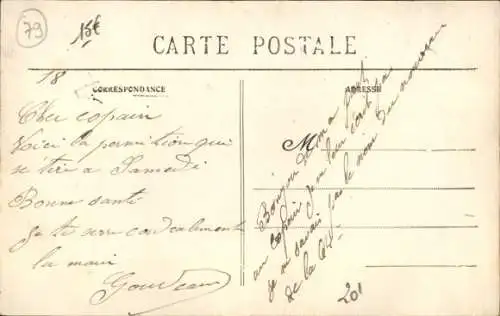 79
15€
CARTE POSTALE
18
CORRESPONDANCE
ADRESSE
Cher copain
Voici la permition qui
se tire a Samedi
Bonne santé
Je te serre cordialement
la main
Gouveau
M
Bonjour de ma part
au copain je leur écrit pas
je ne savais pas le nom du nouveau
de la
201